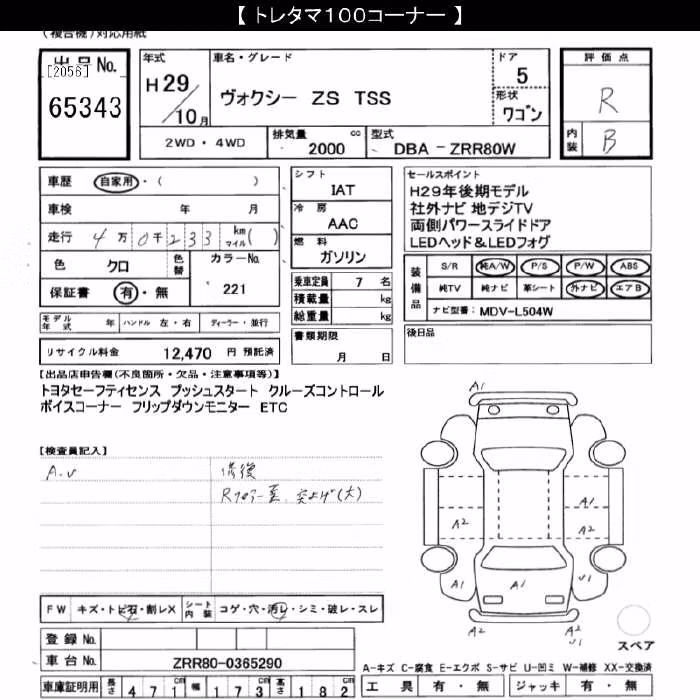 【 トレタマ100コーナー 】
(複合機)対応用紙
出品No.
[2056]
65343
年式
H29/10月
車名・グレード
ヴォクシー ZS TSS
ドア
5
形状
ワゴン
2WD・4WD
排気量 cc
2000
型式
DBA－ZRR80W
評価点
R
内装
B
車歴 自家用・( )
車検 年 月
走行 4万0千233 km マイル( )
色 クロ 色替
カラーNo.
221
保証書 有・無
シフト
IAT
冷房
AAC
燃料
ガソリン
乗車定員 7 名
積載量 kg
総重量 kg
セールスポイント
H29年後期モデル
社外ナビ 地デジTV
両側パワースライドドア
LEDヘッド＆LEDフォグ
装備品
S/R 純A/W P/S P/W ABS
純TV 純ナビ 革シート 外ナビ エアB
ナビ型番: MDV-L504W
モデル年式 年 ハンドル 左・右 ディーラー・並行
リサイクル料金 12,470 円 預託済
書類期限
月 日
後日品
【出品店申告欄(不良箇所・欠品・注意事項等)】
トヨタセーフティセンス プッシュスタート クルーズコントロール
ボイスコーナー フリップダウンモニター ETC
【検査員記入】
A.U
修復
Rフロアー歪、突上げ(大)
A1
A1
A2
A2
A1
A1
U1
A2
A2
U1
スペア
FW キズ・トビ石・割レX シート内装 コゲ・穴・汚レ・シミ・破レ・スレ
登録No.
車台No. ZRR80-0365290
車庫証明用 長さ 471cm 幅 173cm 高さ 182cm
A-キズ C-腐食 E-エクボ S-サビ U-凹ミ W-補修 XX-交換済
工具 有・無 ジャッキ 有・無